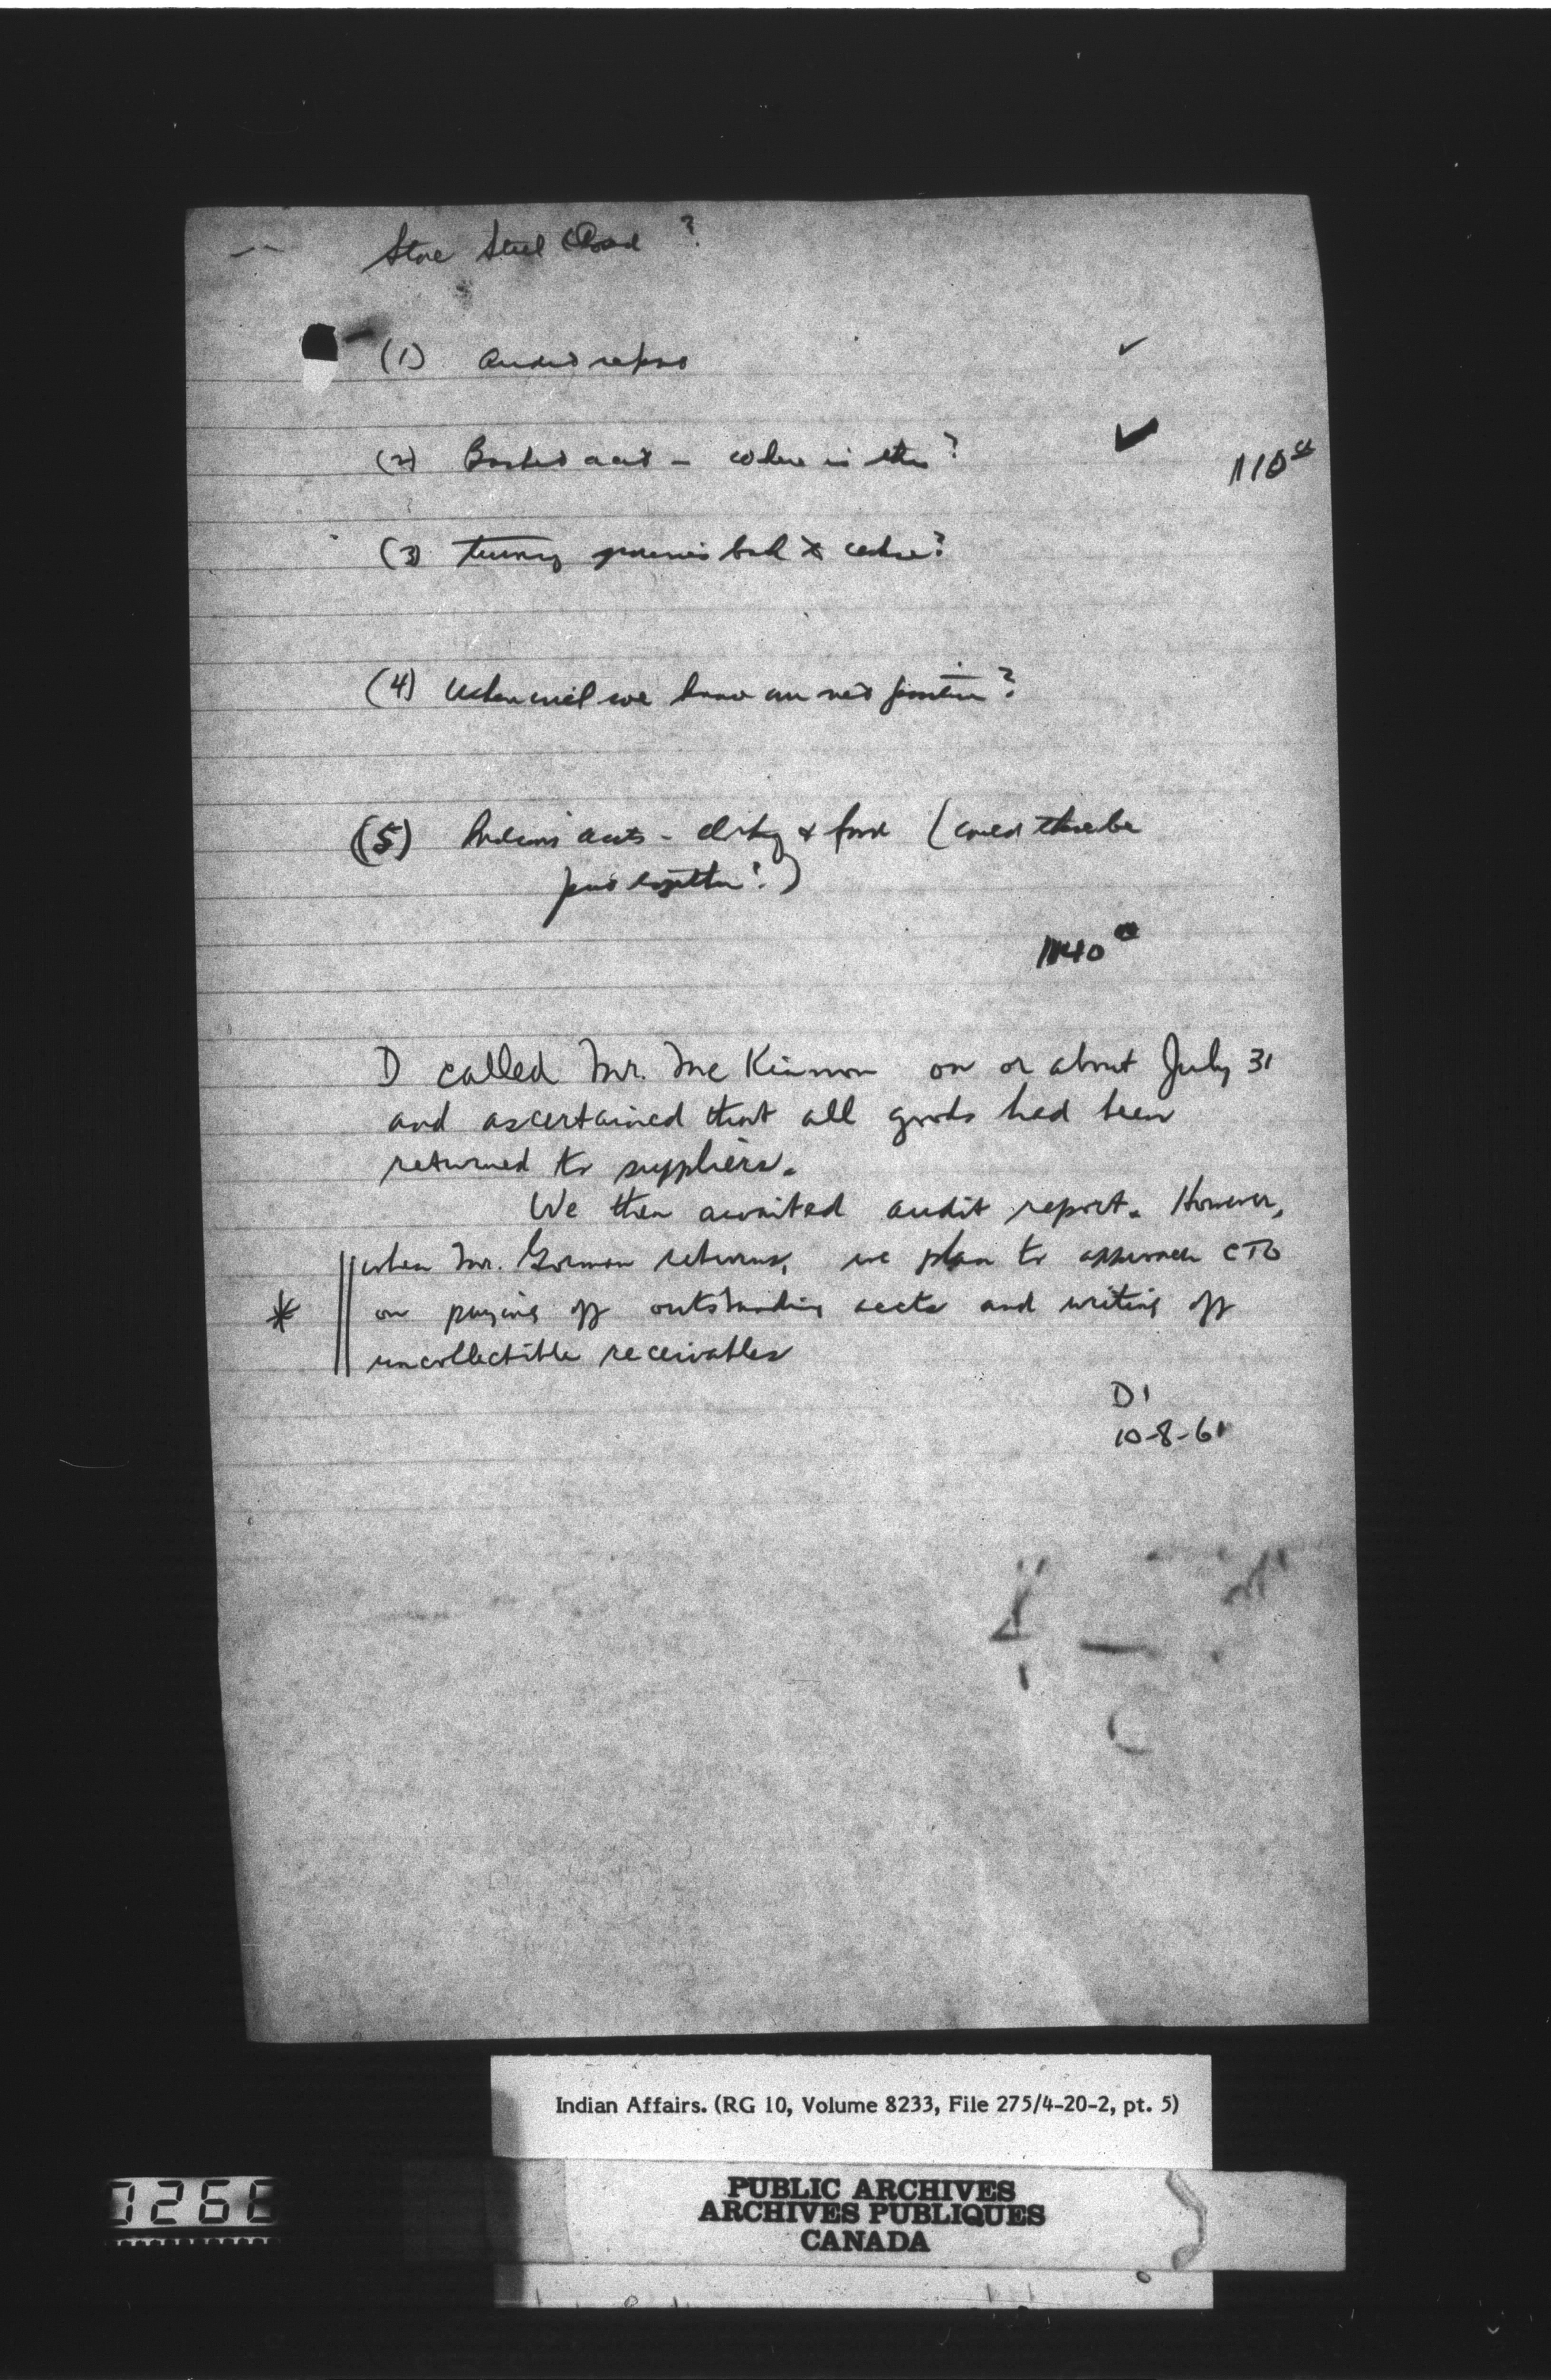 Store Still Closed ?
(1) Audit report ✓
(2) Basket acct - where is this? ✓
(3) Turning groceries back to
(4) When will we know our net position?
(5) Indians accts - clothing & food (could these be
put together?)
D called Mr. McKinnon on or about July 31
and ascertained that all goods had been
returned to suppliers.
We then awaited audit report. However,
when Mr. Gorman returns, we plan to approach CTO
* on paying off outstanding accts and writing off
uncollectible receivables
D1
10-8-61
Indian Affairs. (RG 10, Volume 8233, File 275/4-20-2, pt. 5)
PUBLIC ARCHIVES
ARCHIVES PUBLIQUES
CANADA